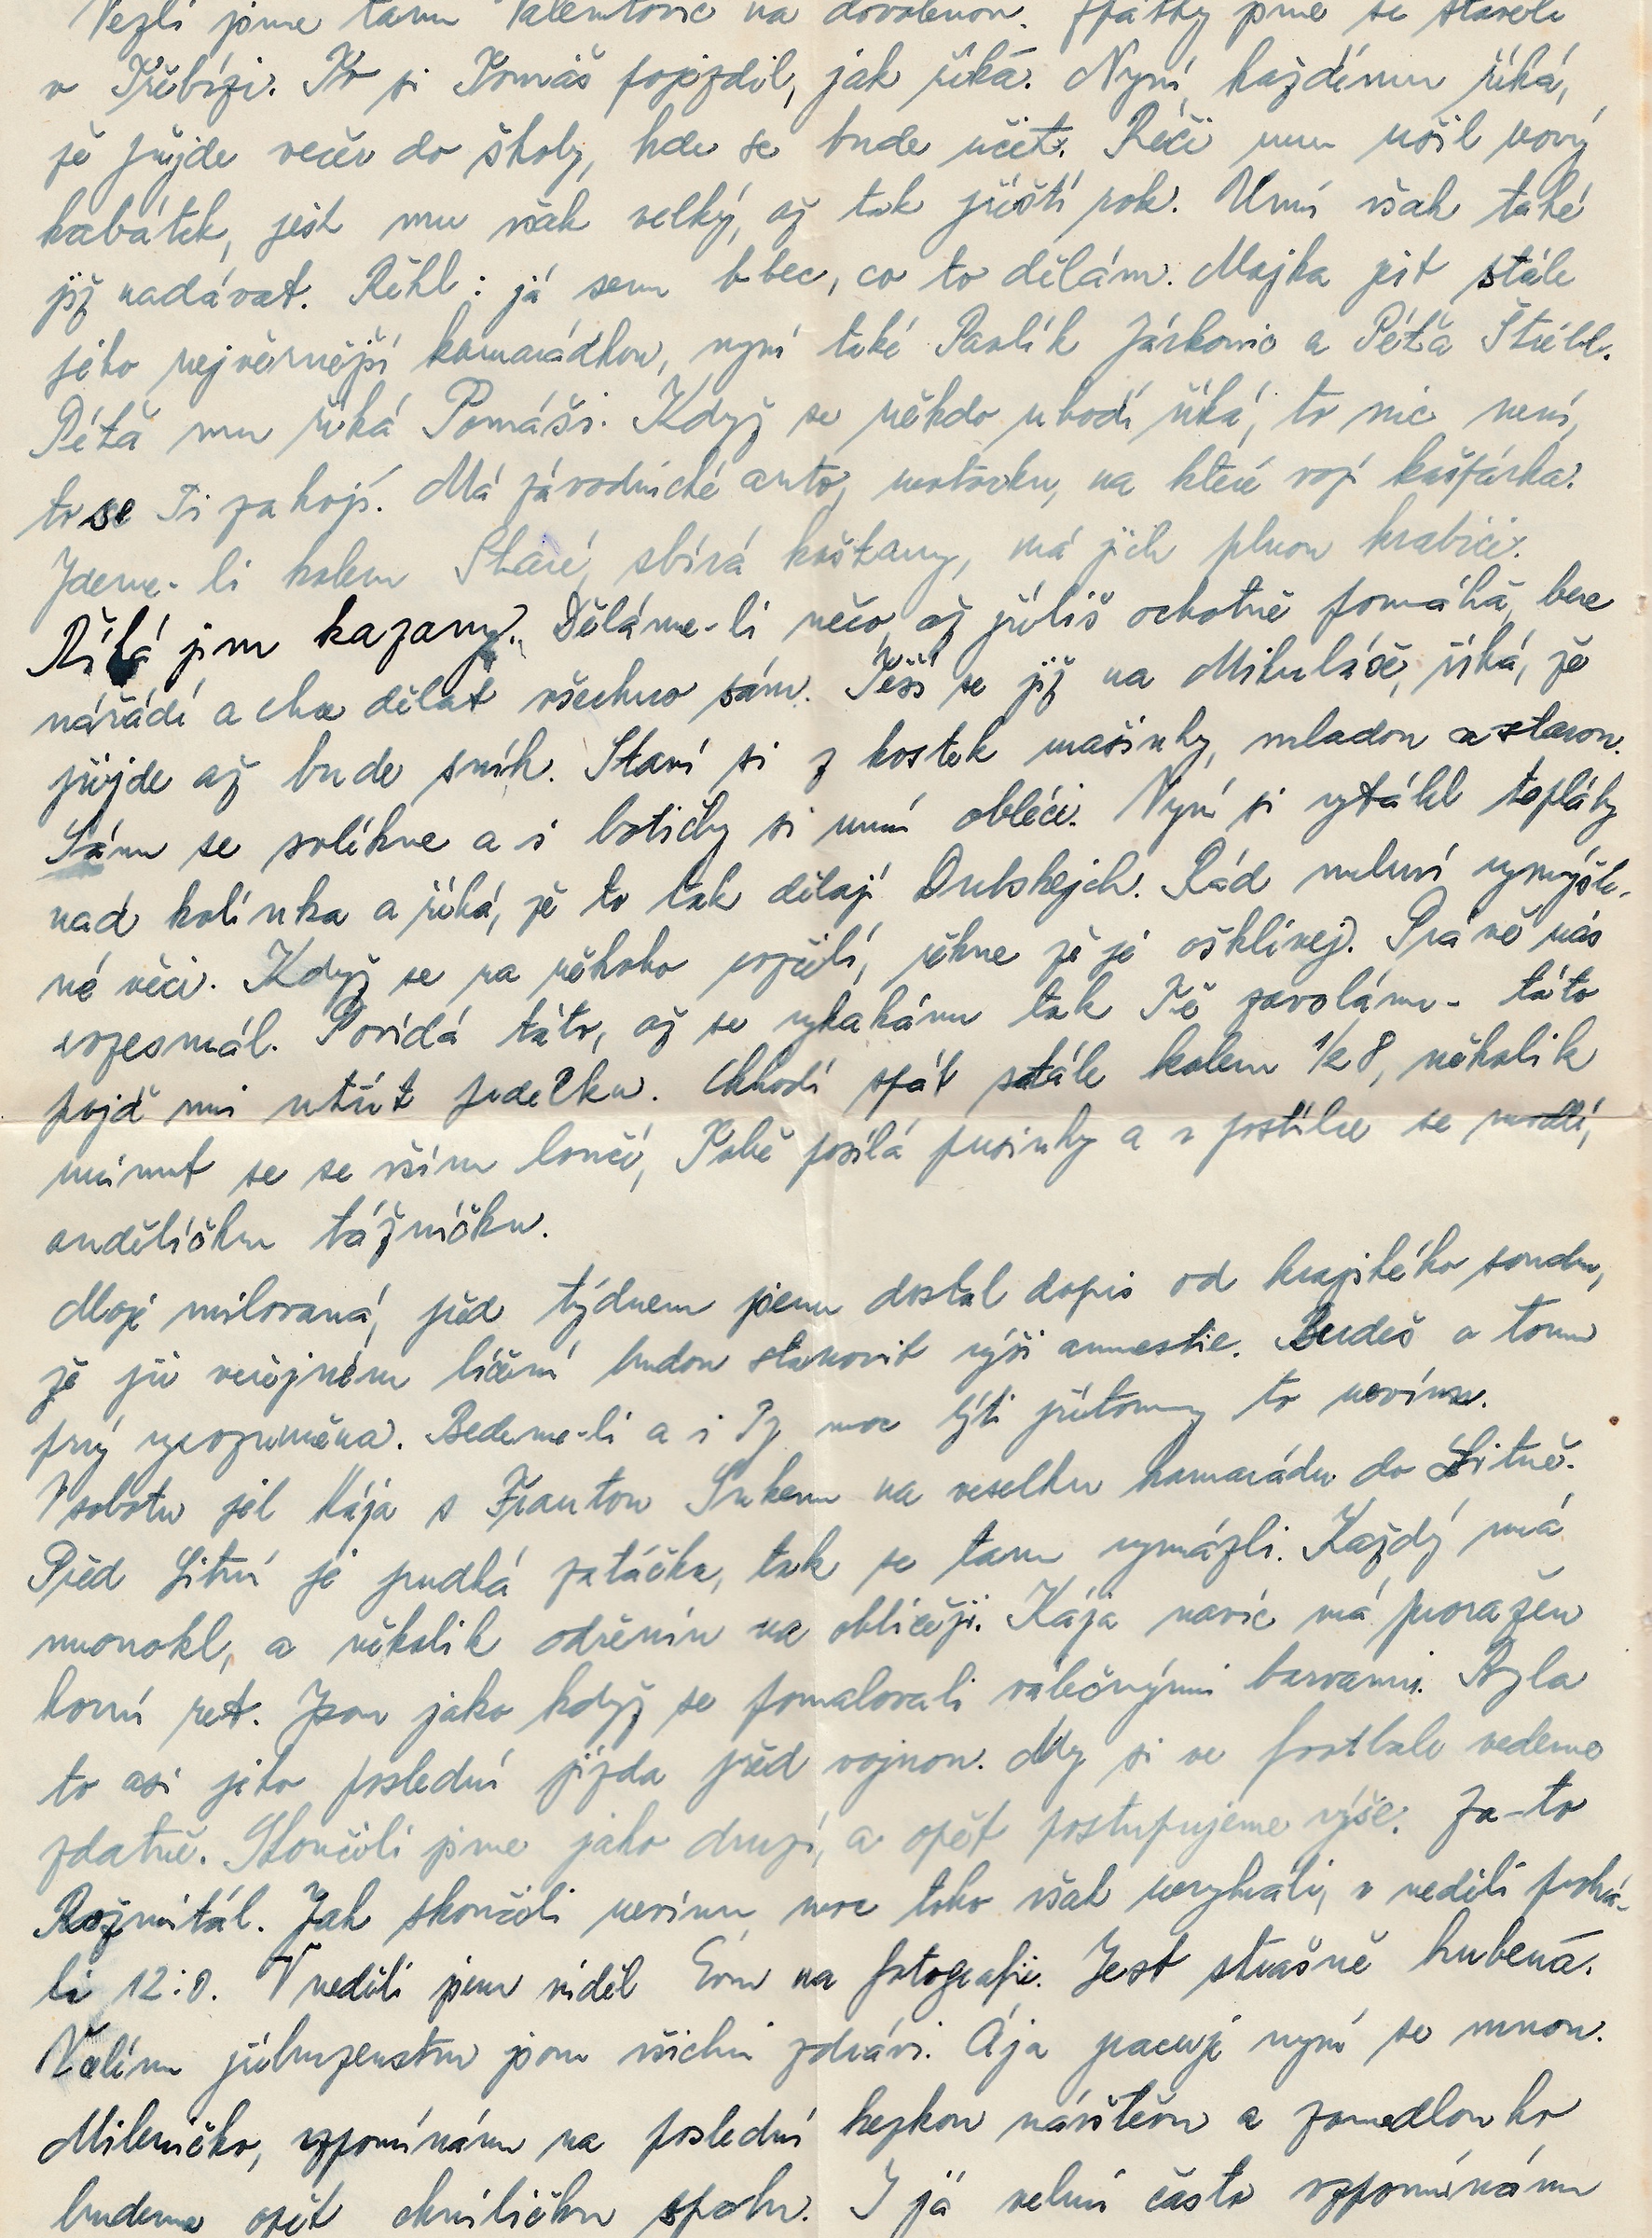 Vezli jsme tam Valentovic na dovolenou. Zpátky jsme se stavěli
v Třebízi. To si Tomáš pojezdil, jak říká. Nyní každému říká,
že půjde večer do školy, kde se bude učit. Péči mu ušil nový
kabátek, jest mu však velký, až tak příští rok. Umí však také
již nadávat. Řekl: já sem bbec, co to dělám. Majka jest stále
jeho nejvěrnější kamarádkou, nyní také Pavlík Járkovic a Péťa Štiébl.
Péťa mu říká Pomáši. Když se někdo uhodí říká, to nic není,
to se Ti zahojí. Má závodnické auto, motorku, na které vozí kašpárka.
Jdeme-li kolem Staré, sbírá kaštany, má jich plnou krabici.
Říká jim kazany. Děláme-li něco, až příliš ochotně pomáhá, bere
nářádí a chce dělat všechno sám. Těší se již na Mikuláše, říká, že
přijde až bude sníh. Staví si z kostek mašinky, mladou a starou.
Sám se svlíkne a i botičky si umí obléci. Nyní si vytáhl tepláky
nad kolínka a říká, že to tak dělají Dubskejch. Rád mluví vymyšle-
né věci. Když se na někoho rozčílí, řekne že je ošklivej. Právě nás
rozesmál. Povídá táto, až se vykakám tak Tě zavolám - táto
pojď mi utřít prdelku. Chhodí spát stále kolem 1/2 8, několik
minut se se vším loučí, Tobě posílá pusinky a v postýlce se modlí,
andělíčku tážníčku.
Moje milovaná, před týdnem jsem dostal dopis od krajského soudu,
že při veřejném líčení budou stanovit výši amnestie. Budeš o tom
prý vyrozuměna. Bedeme-li a i Ty moc býti přítomny to nevíme.
V sobotu jel Kája s Frantou Sukem na veselku kamarádu do Litně.
Před Litní je prudká zatáčka, tak se tam vymázli. Každý má
monokl, a několik odřenin na obličeji. Kája navíc má proražen
horní ret. Jsou jako když se pomalovali válečnými barvami. Byla
to asi jeho poslední jízda před vojnou. My si ve footbale vedeme
zdatně. Skončili jsme jako druzí, a opět postupujeme výše. Za-to
Rožmitál. Jak skončili nevím moc toho však nevyhráli, v neděli prohrá-
li 12:0. V neděli jsem viděl Evu na fotografii. Jest strašně hubená.
Valím příbuzenstvu jsou všichni zdrávi. Ája pracuje nyní se mnou.
Mileničko, vzpomínám na poslední hezkou návštěvu a zanedlouho
budeme opět chviličku spolu. I já velmi často vzpomínám